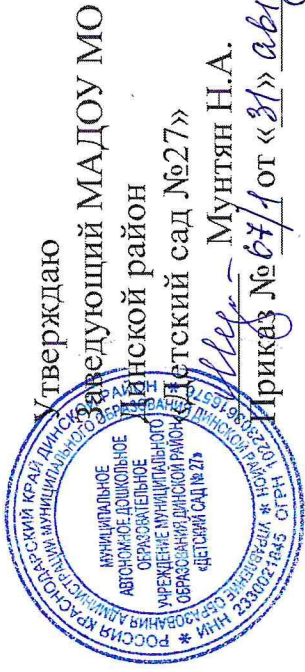 Утверждаю
Заведующий МАДОУ МО
Динской район
«Детский сад №27»
Мунтян Н.А.
Приказ № 67/1 от «31»
РОССИЯ КРАСНОДАРСКИЙ КРАЙ ДИНСКОЙ РАЙОН
УПРАВЛЕНИЕ ОБРАЗОВАНИЯ АДМИНИСТРАЦИИ МУНИЦИПАЛЬНОГО ОБРАЗОВАНИЯ ДИНСКОЙ РАЙОН
ИНН 2330021845 ОГРН
МУНИЦИПАЛЬНОЕ
АВТОНОМНОЕ ДОШКОЛЬНОЕ
ОБРАЗОВАТЕЛЬНОЕ
УЧРЕЖДЕНИЕ МУНИЦИПАЛЬНОГО
ОБРАЗОВАНИЯ ДИНСКОЙ РАЙОН
«ДЕТСКИЙ САД № 27»